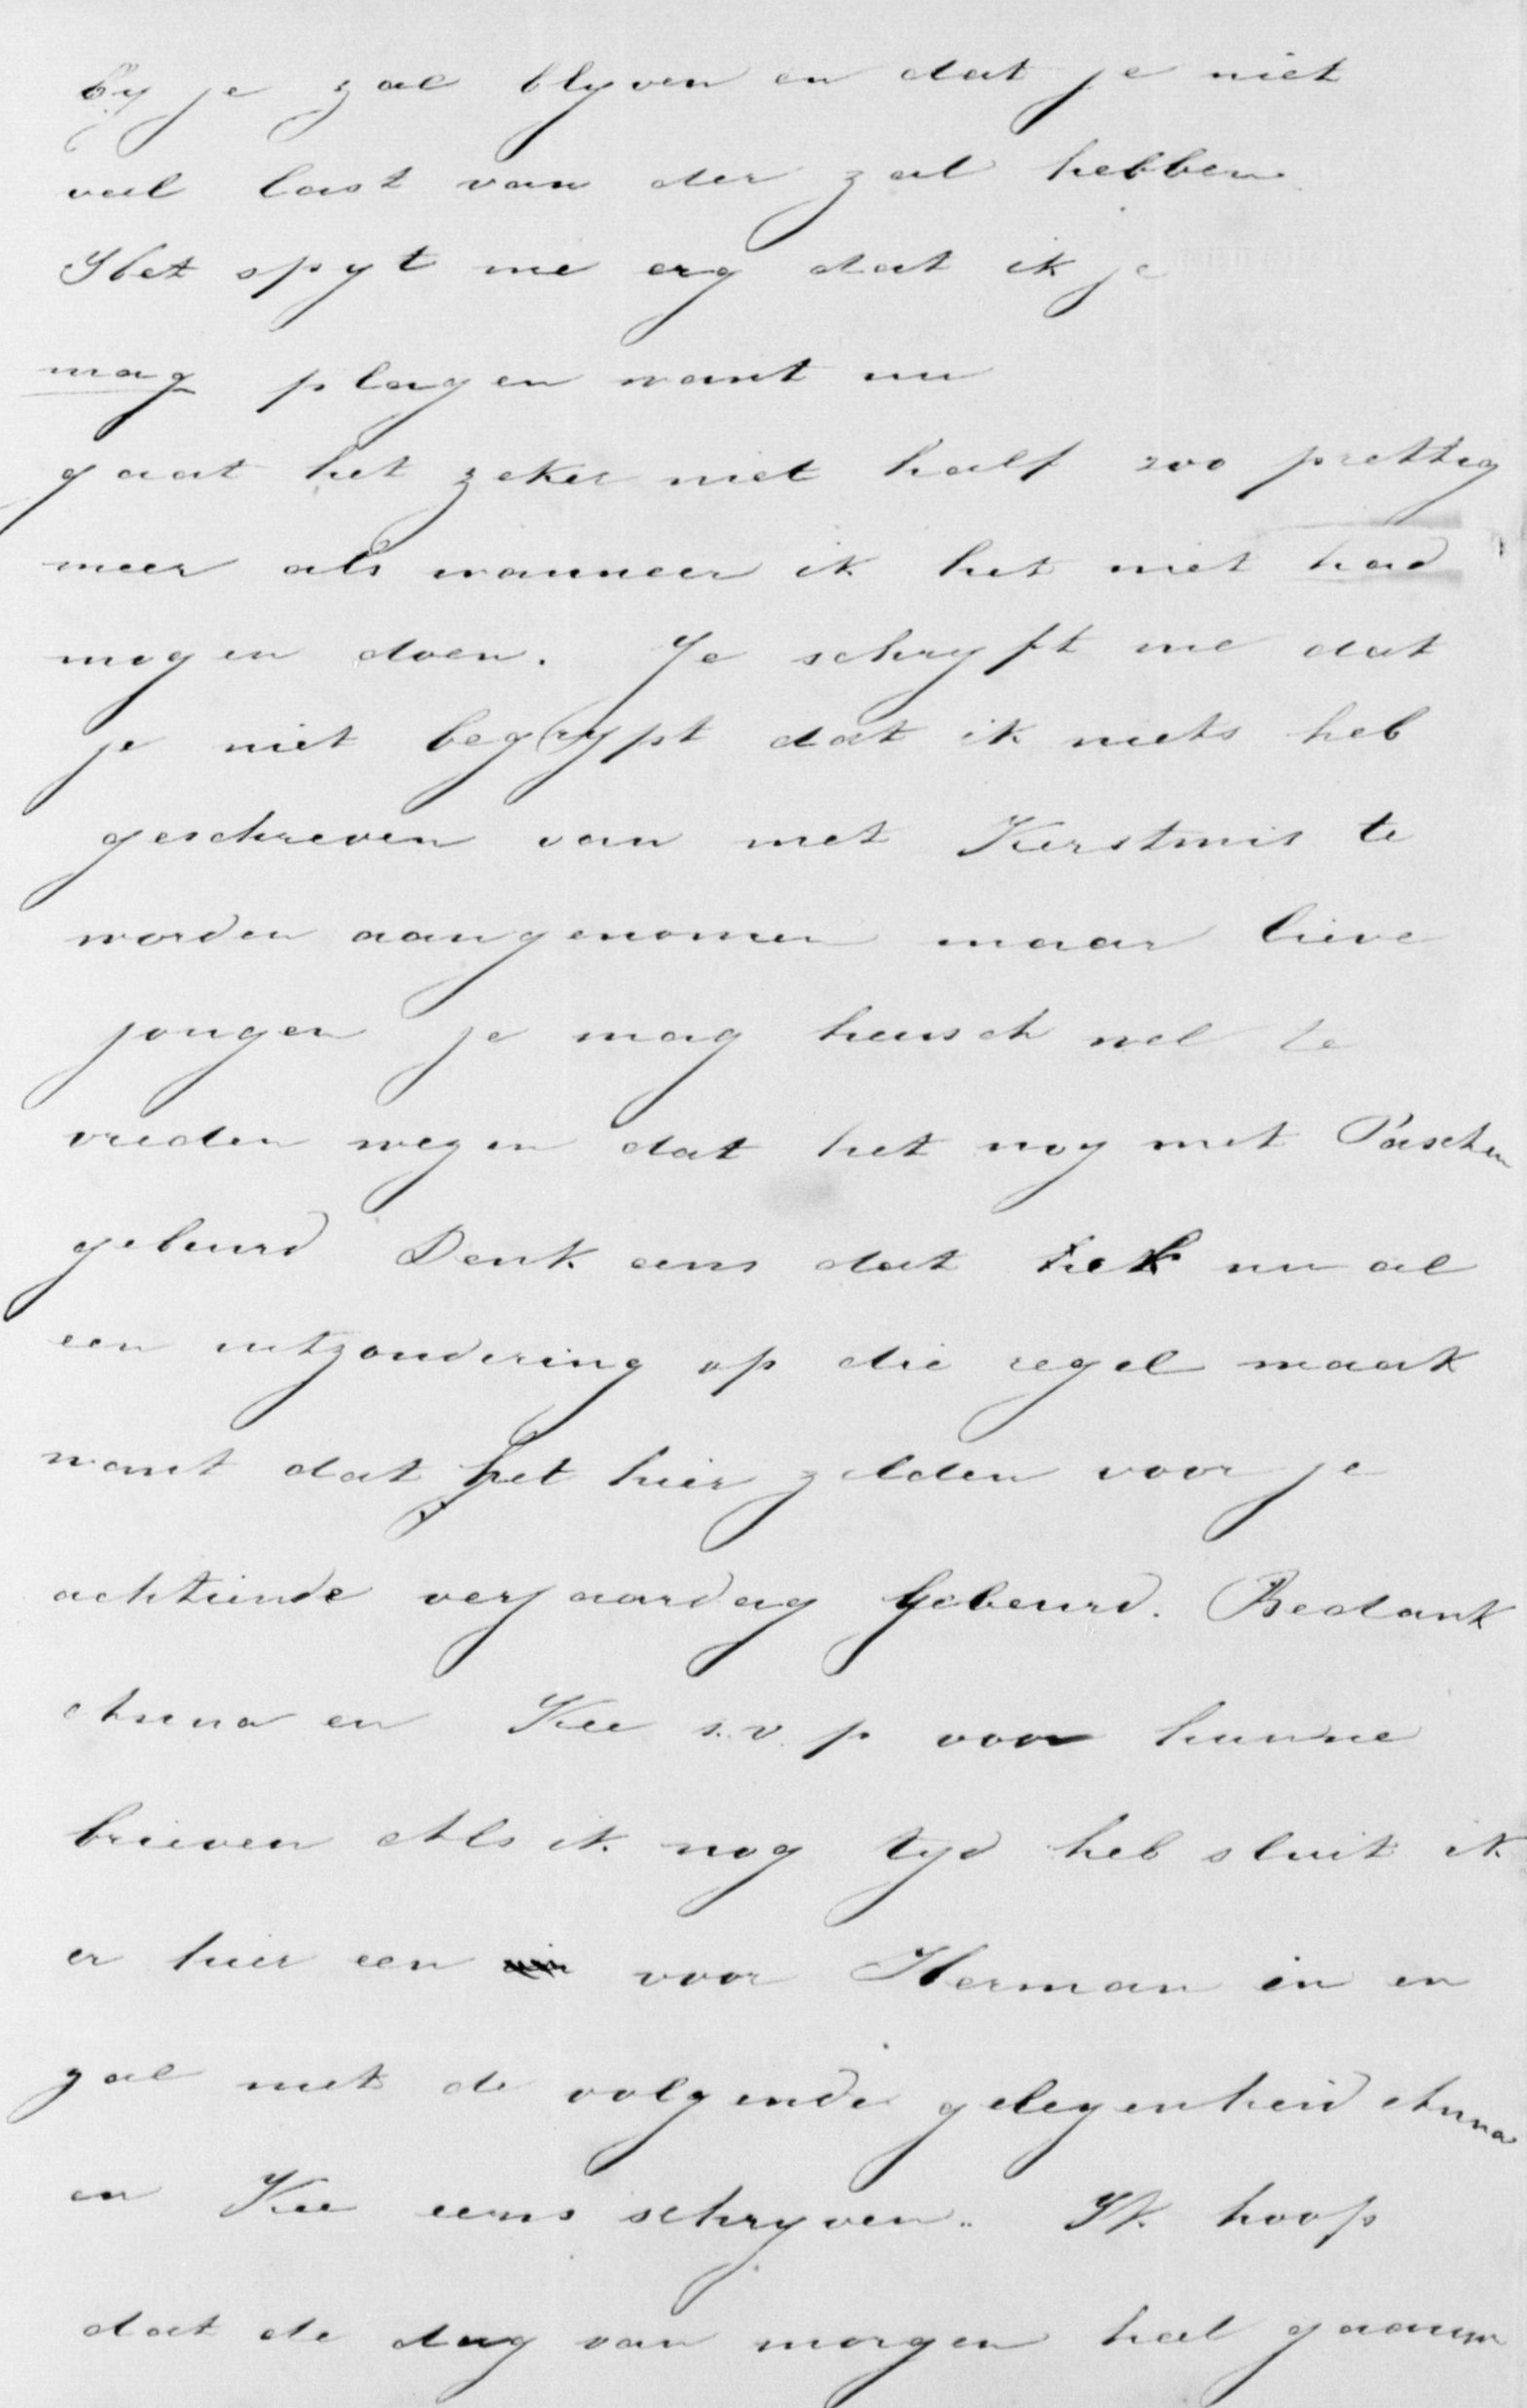 by je zal blyven en dat je niet
veel last van der zal hebben.
Het spyt me erg dat ik je
mag plagen want nu
gaat het zeker niet half zoo prettig
meer als wanneer ik het niet had
mogen doen. Je schryft me dat
je niet begrypt dat ik niets heb
geschreven van met Kerstmis te
worden aangenomen maar lieve
jongen je mag heusch wel te
vreden wezen dat het nog met Paschen
gebeurd Denk eens dat het nu al
een uitzondering op die regel maakt
want dat het hier zelden voor je
achtiende verjaardag gebeurd. Bedank
Anna en Kee s.v.p voor hunne
brieven Als ik nog tyd heb sluit ik
er hier een voor Herman in en
zal met de volgende gelegenheid Anna
en Kee eens schryven. Ik hoop
dat de dag van morgen heel